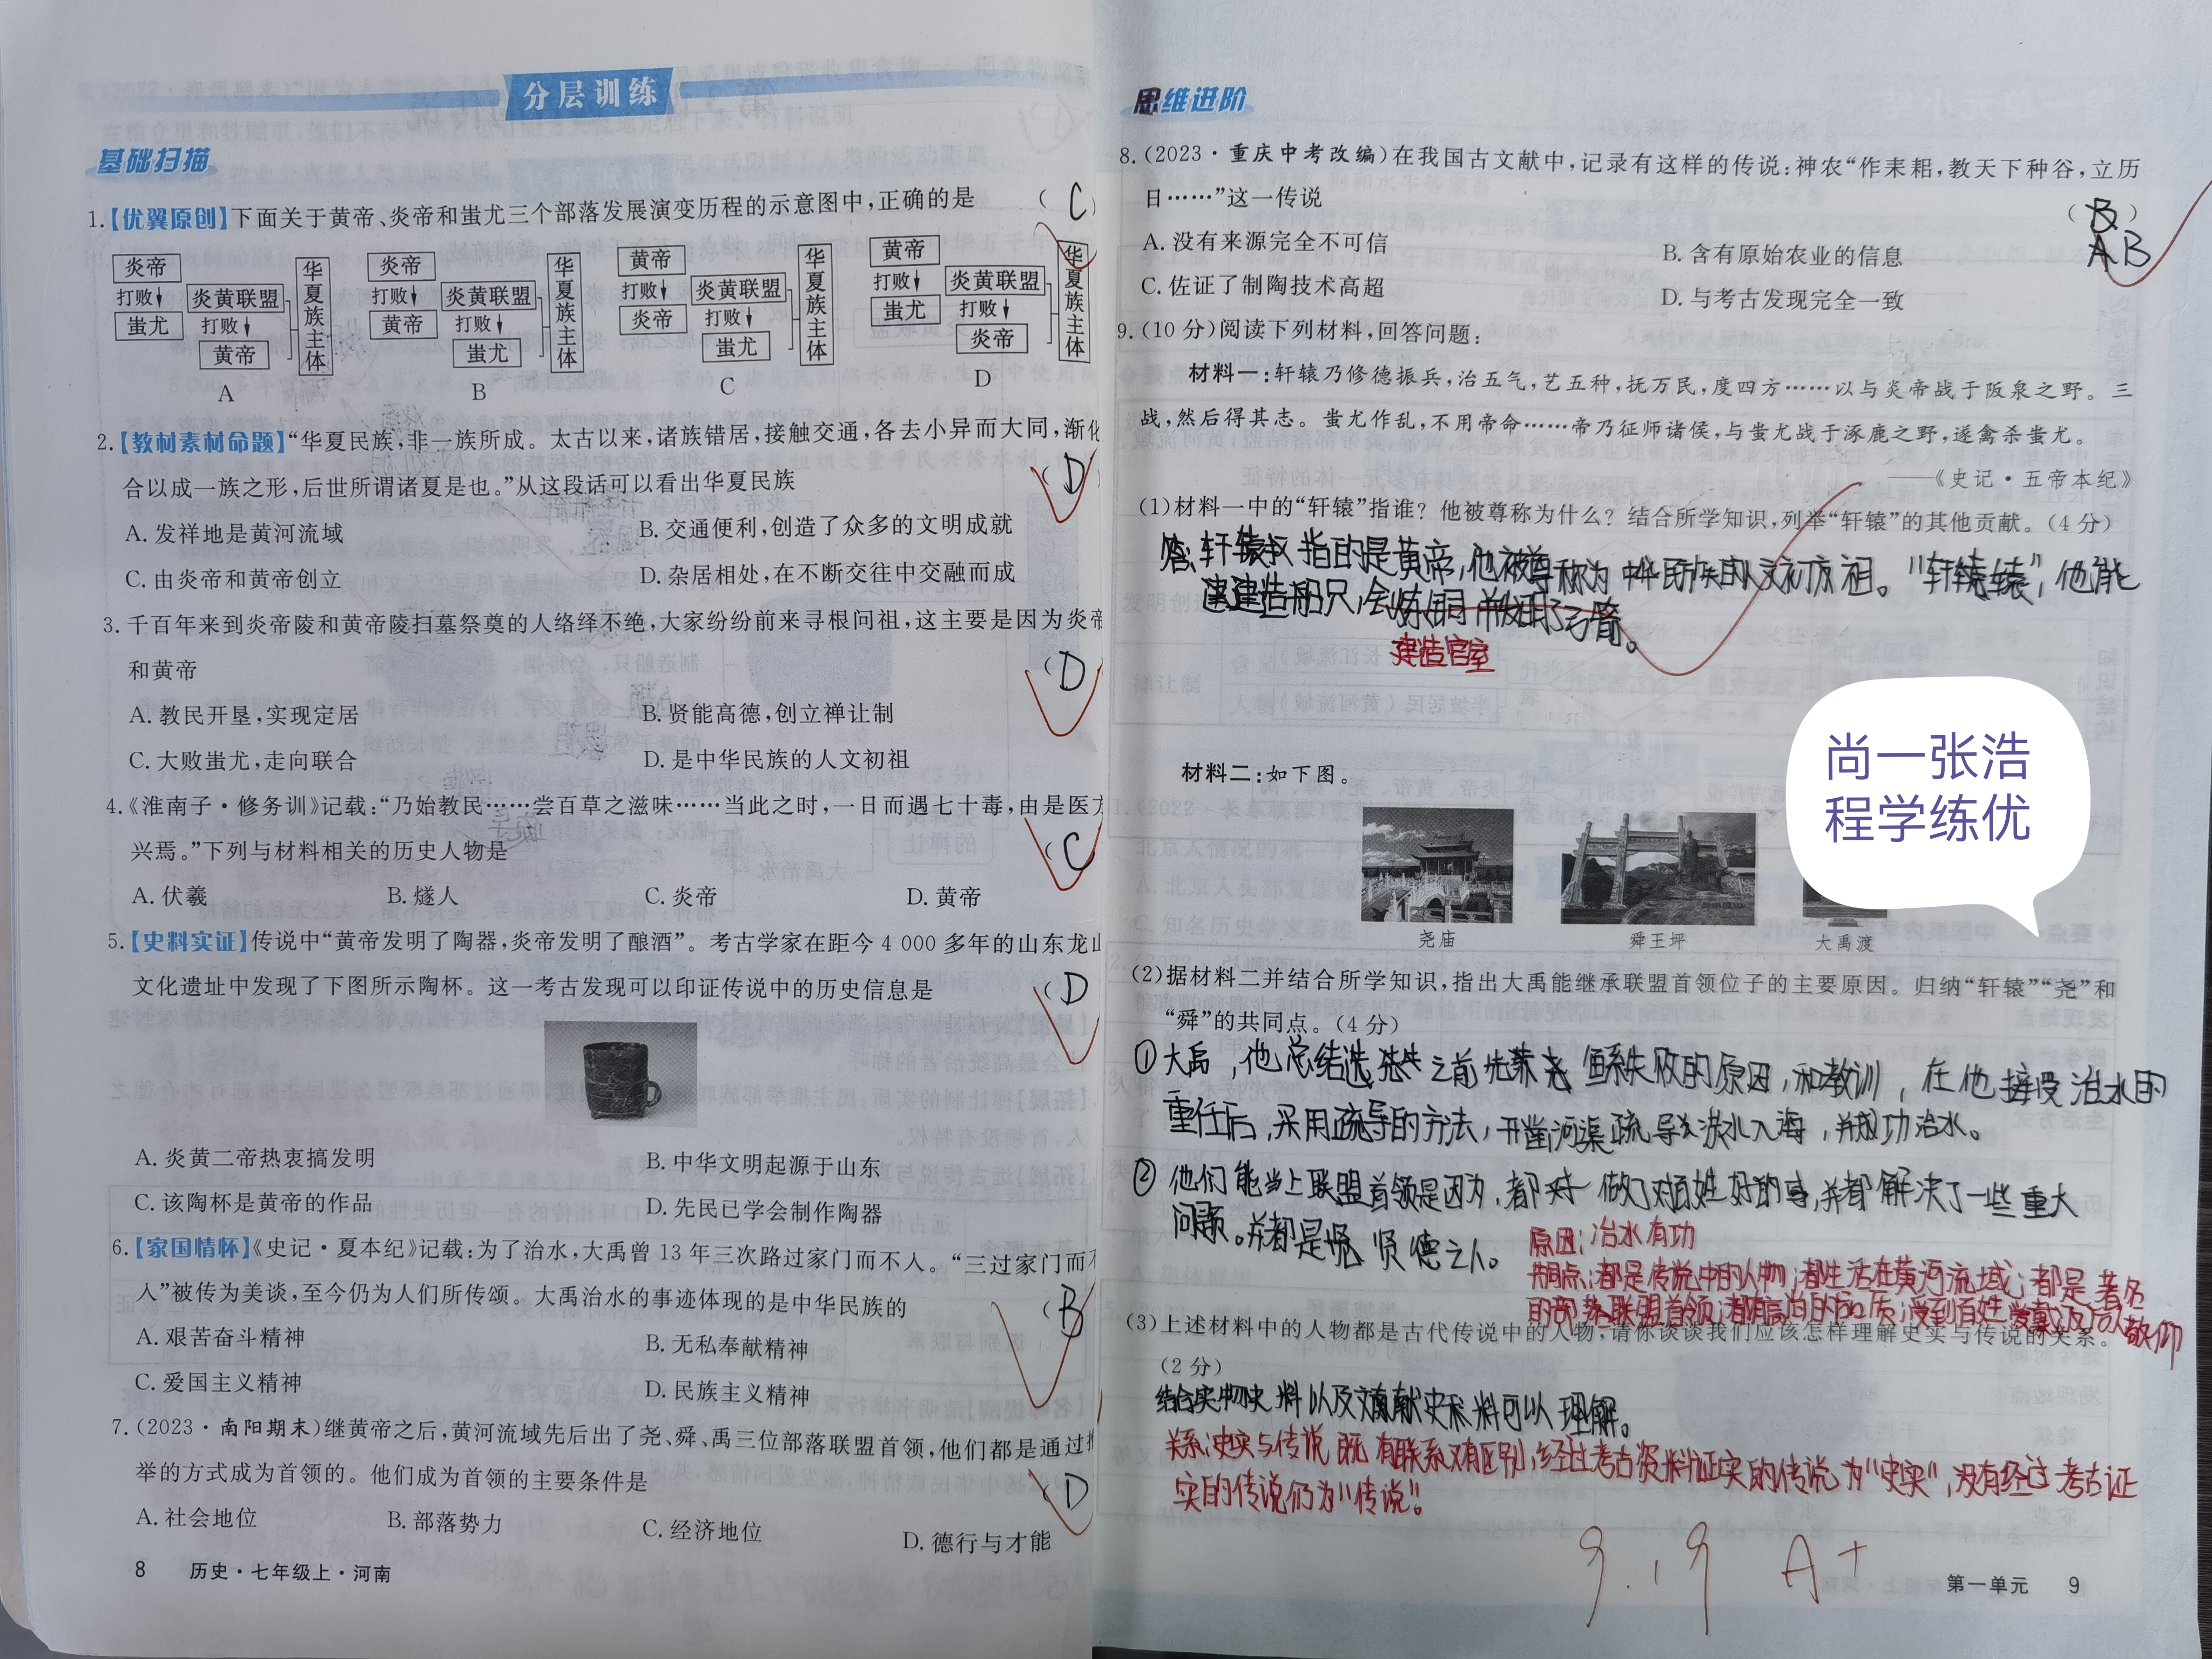 分层训练
基础扫描
1.【优翼原创】下面关于黄帝、炎帝和蚩尤三个部落发展演变历程的示意图中,正确的是 (C)
炎帝 打败↓ 蚩尤 炎黄联盟 打败↓ 黄帝 华夏族主体
A
炎帝 打败↓ 黄帝 炎黄联盟 打败↓ 蚩尤 华夏族主体
B
黄帝 打败↓ 炎帝 炎黄联盟 打败↓ 蚩尤 华夏族主体
C
黄帝 打败↓ 蚩尤 炎黄联盟 打败↓ 炎帝 华夏族主体
D
2.【教材素材命题】“华夏民族,非一族所成。太古以来,诸族错居,接触交通,各去小异而大同,渐化
合以成一族之形,后世所谓诸夏是也。”从这段话可以看出华夏民族 (D)
A. 发祥地是黄河流域 B. 交通便利,创造了众多的文明成就
C. 由炎帝和黄帝创立 D. 杂居相处,在不断交往中交融而成
3. 千百年来到炎帝陵和黄帝陵扫墓祭奠的人络绎不绝,大家纷纷前来寻根问祖,这主要是因为炎帝
和黄帝 (D
A. 教民开垦,实现定居 B. 贤能高德,创立禅让制
C. 大败蚩尤,走向联合 D. 是中华民族的人文初祖
4.《淮南子·修务训》记载:“乃始教民……尝百草之滋味……当此之时,一日而遇七十毒,由是医方
兴焉。”下列与材料相关的历史人物是 (C
A. 伏羲 B. 燧人 C. 炎帝 D. 黄帝
5.【史料实证】传说中“黄帝发明了陶器,炎帝发明了酿酒”。考古学家在距今 4 000 多年的山东龙山
文化遗址中发现了下图所示陶杯。这一考古发现可以印证传说中的历史信息是 (D
A. 炎黄二帝热衷搞发明 B. 中华文明起源于山东
C. 该陶杯是黄帝的作品 D. 先民已学会制作陶器
6.【家国情怀】《史记·夏本纪》记载:为了治水,大禹曾 13 年三次路过家门而不入。“三过家门而不
入”被传为美谈,至今仍为人们所传颂。大禹治水的事迹体现的是中华民族的 (B
A. 艰苦奋斗精神 B. 无私奉献精神
C. 爱国主义精神 D. 民族主义精神
7.(2023·南阳期末)继黄帝之后,黄河流域先后出了尧、舜、禹三位部落联盟首领,他们都是通过推
举的方式成为首领的。他们成为首领的主要条件是 (D
A. 社会地位 B. 部落势力 C. 经济地位 D. 德行与才能
8 历史·七年级上·河南
思维进阶
8.(2023·重庆中考改编)在我国古文献中,记录有这样的传说:神农“作耒耜,教天下种谷,立历
日……”这一传说 (B)
AB
A. 没有来源完全不可信 B. 含有原始农业的信息
C. 佐证了制陶技术高超 D. 与考古发现完全一致
9.(10 分)阅读下列材料,回答问题:
材料一:轩辕乃修德振兵,治五气,艺五种,抚万民,度四方……以与炎帝战于阪泉之野。三
战,然后得其志。蚩尤作乱,不用帝命……帝乃征师诸侯,与蚩尤战于涿鹿之野,遂禽杀蚩尤。
——《史记·五帝本纪》
(1)材料一中的“轩辕”指谁?他被尊称为什么?结合所学知识,列举“轩辕”的其他贡献。(4 分)
答:轩辕 指的是黄帝,他被尊称为 中华民族的人文初祖。“轩辕”,他能
建造船只,会炼铜 弓箭。
建造宫室
材料二:如下图。
尧庙 舜王坪 大禹渡
尚一张浩
程学练优
(2)据材料二并结合所学知识,指出大禹能继承联盟首领位子的主要原因。归纳“轩辕”“尧”和
“舜”的共同点。(4 分)
①大禹,他总结 之前 鲧失败的原因,和教训,在他接受治水的
重任后,采用疏导的方法,开凿河渠疏导 洪水入海,并成功治水。
②他们能当上联盟首领是因为,都 做了对百姓好的事,并都解决了一些重大
问题。并都是 贤德之人。
原因:治水有功
共同点:都是传说中的人物;都生活在黄河流域;都是著名
的部落联盟首领;都有高尚的品质;受到百姓爱戴及后人敬仰
(3)上述材料中的人物都是古代传说中的人物,请你谈谈我们应该怎样理解史实与传说的关系。
(2 分)
结合实物史料以及文献史料可以理解。
关系:史实与传说既有联系又有区别,经过考古资料证实的传说为“史实”,没有经过考古证
实的传说仍为“传说”。
9.19 A+
第一单元 9